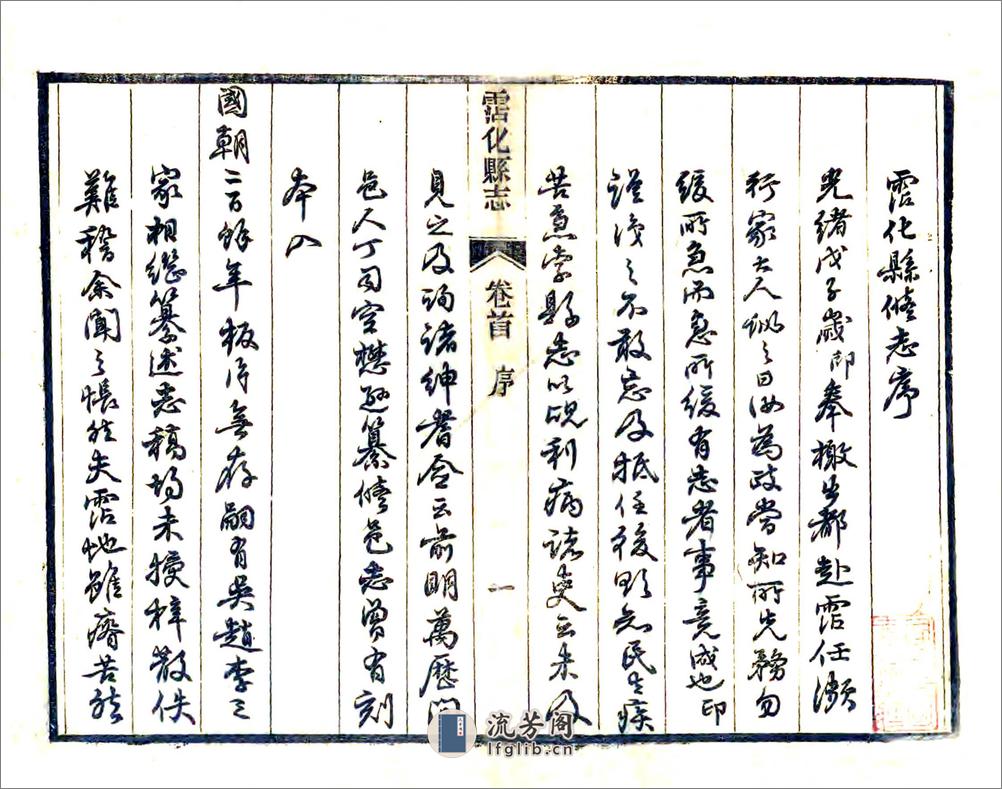 霑化縣脩志序
光緒戊子歲印奉檄出都赴霑任瀕
行家大人訓之曰汝為政當知所先務勿
緩所急而急所緩有志者事竟成也印
謹識之不敢忘及抵任後欲知民生疾
苦急索縣志以覘利病諸吏云未及
見之及詢諸紳耆僉云前明萬歷間
邑人丁司空懋遜纂脩邑志曾有刻
本入
國朝二百餘年板片無存嗣有吳趙李三
家相繼纂述志稿均未授梓散佚
難稽余聞之悵然夫霑地雖瘠苦然
霑化縣志
卷首 序
一
流芳阁
lfglib.cn